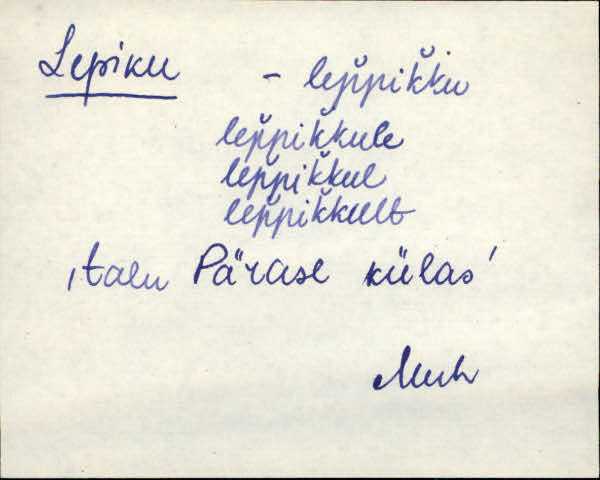 Lepiku - lep̆pik̆ku
lep̆pik̆kule
lep̆pik̆kul
lep̆pik̆kult
‚talu Pärase külas’
Muh